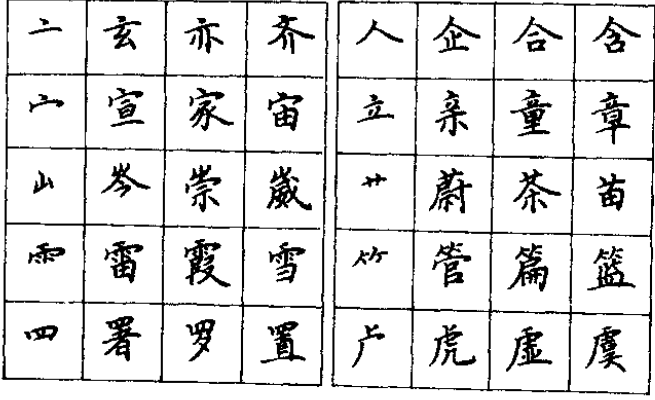 亠 玄 亦 齐 人 企 合 含
宀 宣 家 宙 立 亲 童 章
山 岑 崇 崴 艹 蔚 茶 苗
⻗ 雷 霞 雪 ⺮ 管 篇 篮
罒 署 罗 置 虍 虎 虚 虞